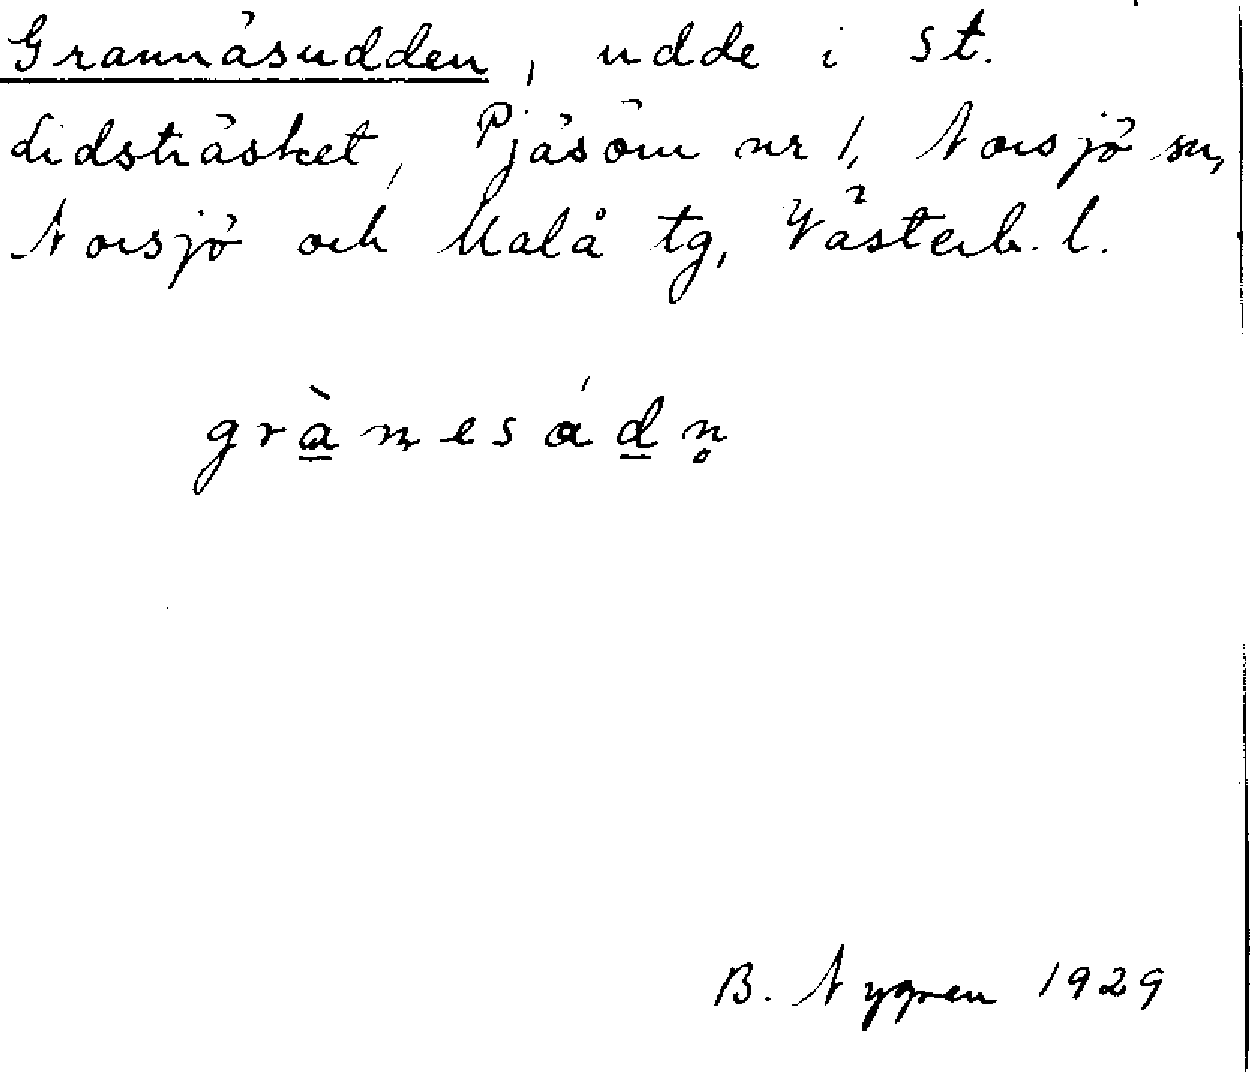 Grannäsudden, udde i St.
Lidsträsket, Pjäsörn nr 1, Norsjö sn,
Norsjö och Malå tg, Västerb. l.
grànesádn̥
B. Nygren 1929